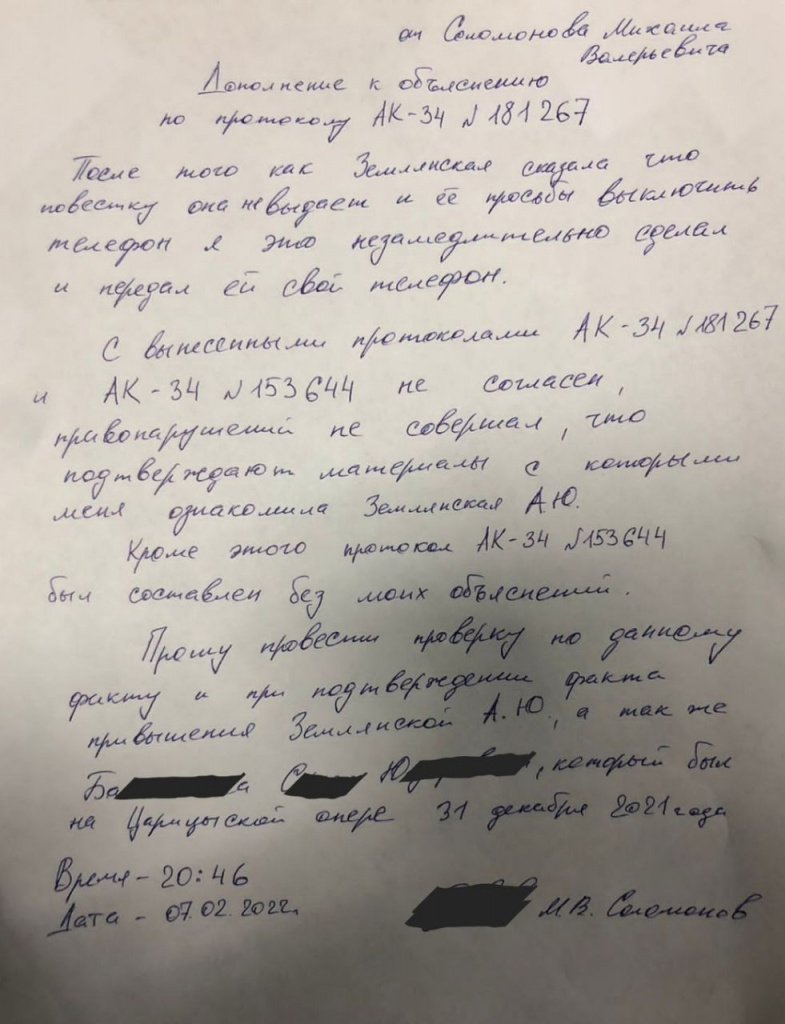 от Соломонова Михаила
Валерьевича
Дополнение к объяснению
по протоколу АК-34 №181267
После того как Землянская сказала что
повестку она невыдает и её просьбы выключить
телефон я это незамедлительно сделал
и передал ей свой телефон.
С вынесенными протоколами АК-34 №181267
и АК-34 №153644 не согласен,
правонарушений не совершал, что
подтверждают материалы с которыми
меня ознакомила Землянская А.Ю.
Кроме этого протокол АК-34 №153644
был составлен без моих объяснений.
Прошу провести проверку по данному
факту и при подтверждении факта
привышения Землянской А.Ю., а так же
который был
на Царицыской опере 31 декабря 2021 года
Время - 20:46
Дата - 07.02.2022г.
М.В. Соломонов